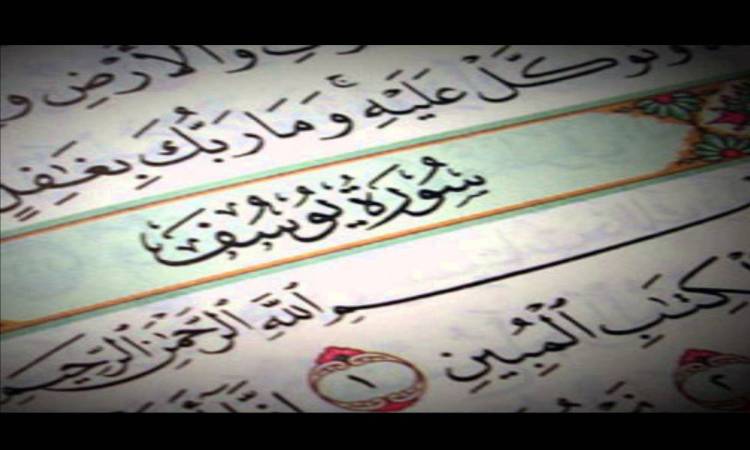 وَٱلْأَرْضِ
وَتَوَكَّلْ عَلَيْهِ ۚ وَمَا رَبُّكَ بِغَٰفِلٍ
سُورَةُ يُوسُفَ
بِسْمِ ٱللَّهِ ٱلرَّحْمَٰنِ ٱلرَّحِيمِ
ٱلْكِتَٰبِ ٱلْمُبِينِ ١ إِنَّا
٢